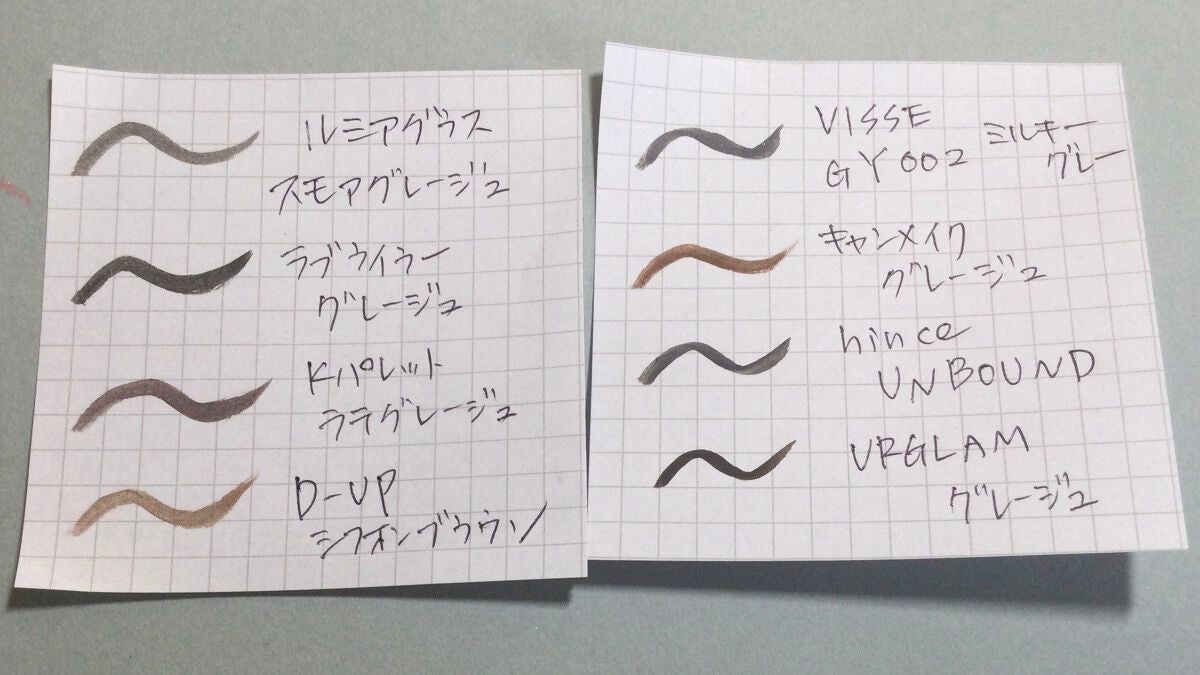 ルミアグラス
スモアグレージュ
ラブライラー
グレージュ
Kパレット
ラテグレージュ
D-UP
シフォンブラウン
VISSE
GY002 ミルキー
グレー
キャンメイク
グレージュ
hince
UNBOUND
URGLAM
グレージュ